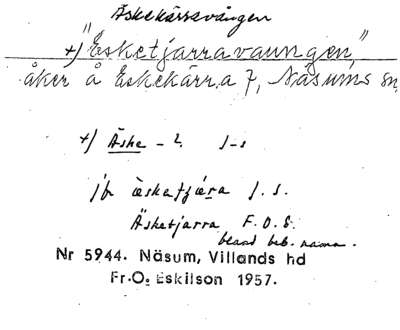 Äskekärravången
+) "Esketjarravaungen",
åker å Eskekärra 7, Näsums sn,
+) Äske - 2. J-s
jfr æskatjæra J. S.
Äsketjarra F. O. E.
bland beb. namn.
Nr 5944. Näsum, Villands hd
Fr.O. Eskilson 1957.